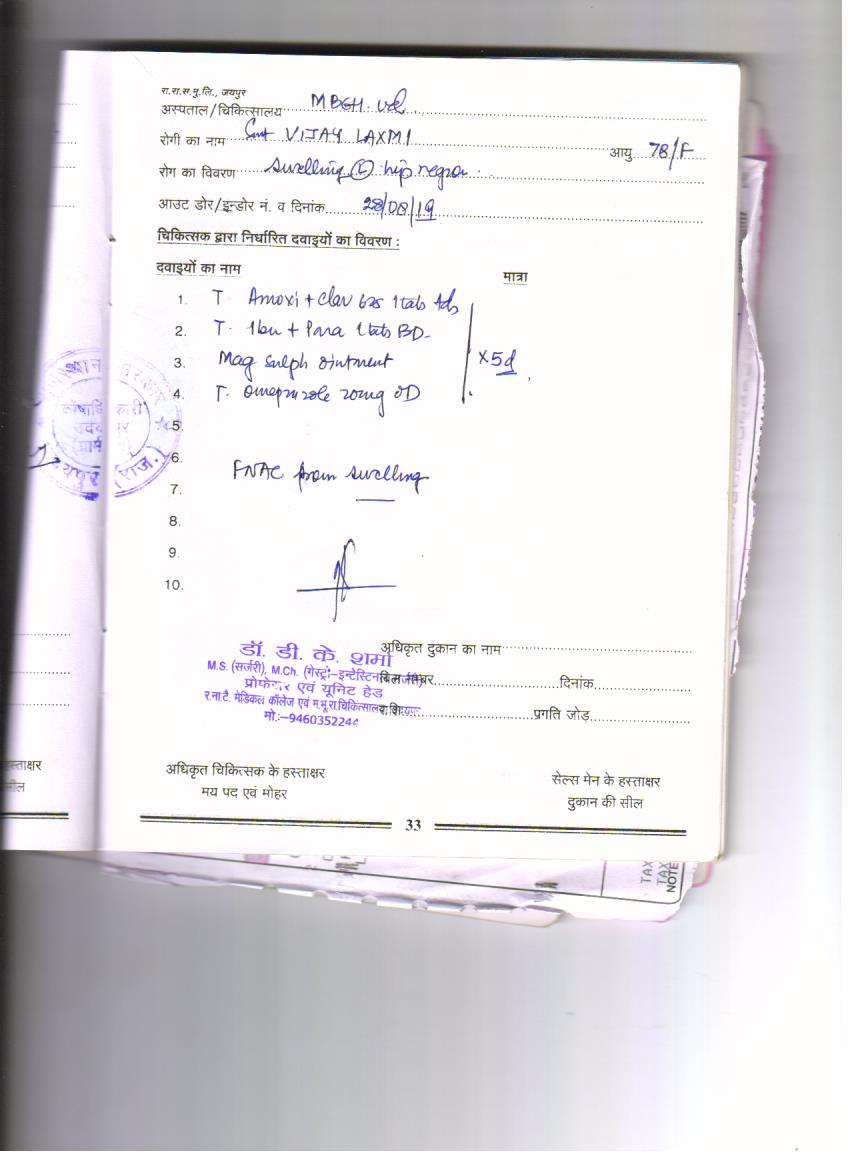 रा.रा.स.मु.लि., जयपुर
अस्पताल/चिकित्सालय MBGH
रोगी का नाम Smt VIJAY LAXMI आयु 78/F
रोग का विवरण Swelling (L) hip region
आउट डोर/इन्डोर नं. व दिनांक 28/08/19
चिकित्सक द्वारा निर्धारित दवाइयों का विवरण :
दवाइयों का नाम मात्रा
1. T. Amoxi + Clav 625 1 tab tds
2. T. Ibu + Para 1 tab BD
3. Mag sulph ointment x 5d
4. T. Omeprazole 20mg OD
5.
6.
FNAC from swelling
7.
8.
9.
10.
डॉ. डी. के. शर्मा
अधिकृत दुकान का नाम
M.S. (सर्जरी), M.Ch.
प्रोफेसर एवं यूनिट हेड
दिनांक
र.ना.टै. मेडिकल कॉलेज एवं
प्रगति जोड़
मो.:–9460352244
अधिकृत चिकित्सक के हस्ताक्षर
मय पद एवं मोहर
सेल्स मेन के हस्ताक्षर
दुकान की सील
33
स्ताक्षर
सील
TAX
NOTE